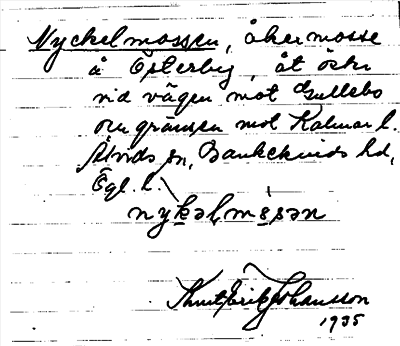 Nyckelmossen, åkermosse
å Österby, åt öster
vid vägen mot Gullebo
om gränsen mot Kalmar l.
Åtvids sn, Bankekinds hd,
Ögl. l.
nykəlmɵsən
Knut Erik Johansson
1935